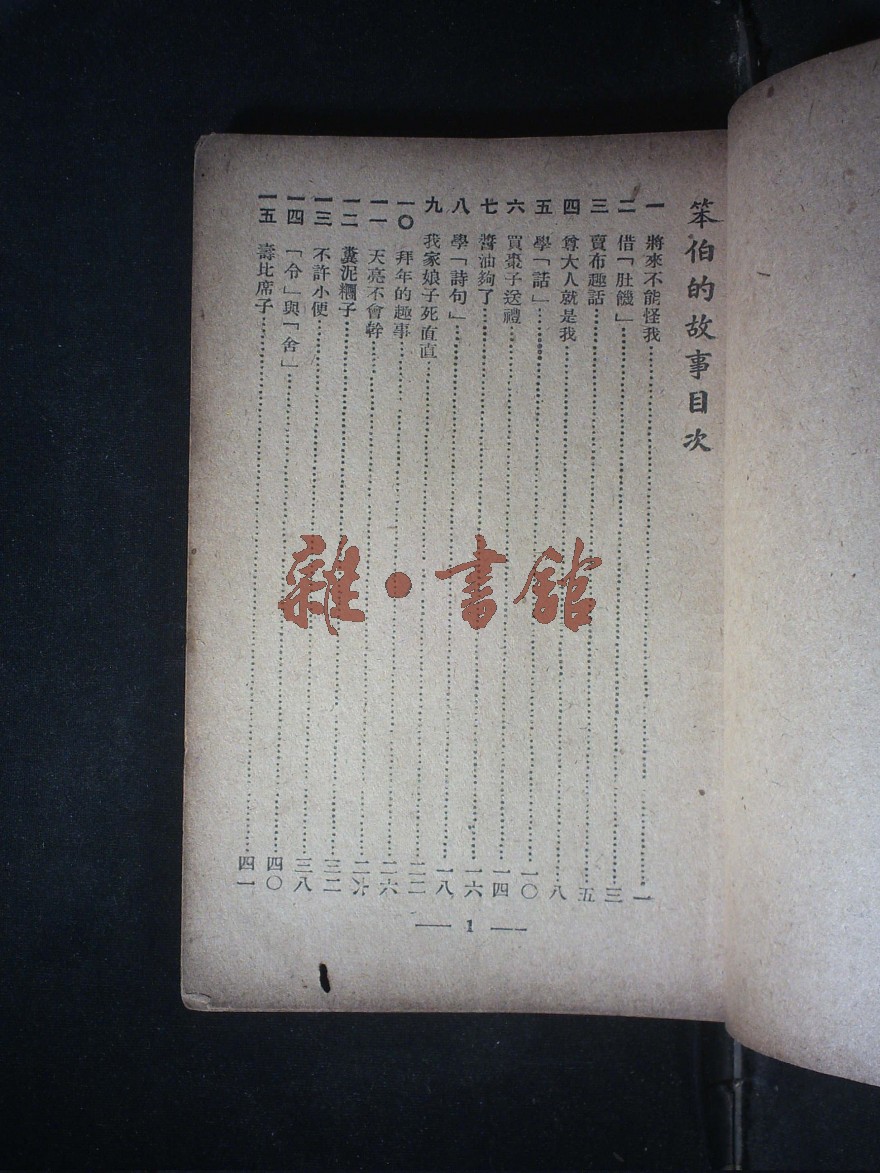 笨伯的故事目次
一 將來不能怪我…………一
二 借「肚饑」…………三
三 賣布趣話…………五
四 尊大人就是我…………八
五 學「話」…………一〇
六 買棗子送禮…………一四
七 醬油夠了…………一六
八 學「詩句」…………一八
九 我家娘子死直直…………二二
一〇 拜年的趣事…………二六
一一 天亮不會幹…………二
一二 糞泥糰子…………三二
一三 不許小便…………三八
一四 「令」與「舍」…………四〇
一五 壽比席子…………四一
— 1 —
雜·書館